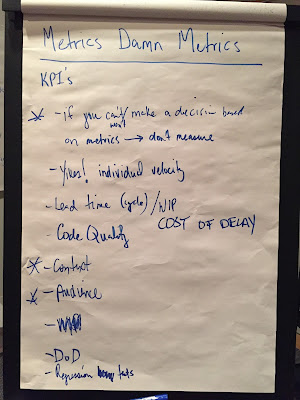 Metrics Damn Metrics
KPI's
- if you can't/won't make a decision based
on metrics → don't measure
- Yikes! individual velocity
- Lead time (cycle) / WIP
COST OF DELAY
- Code Quality
- Context
- Audience
- DoD
- Regression tests